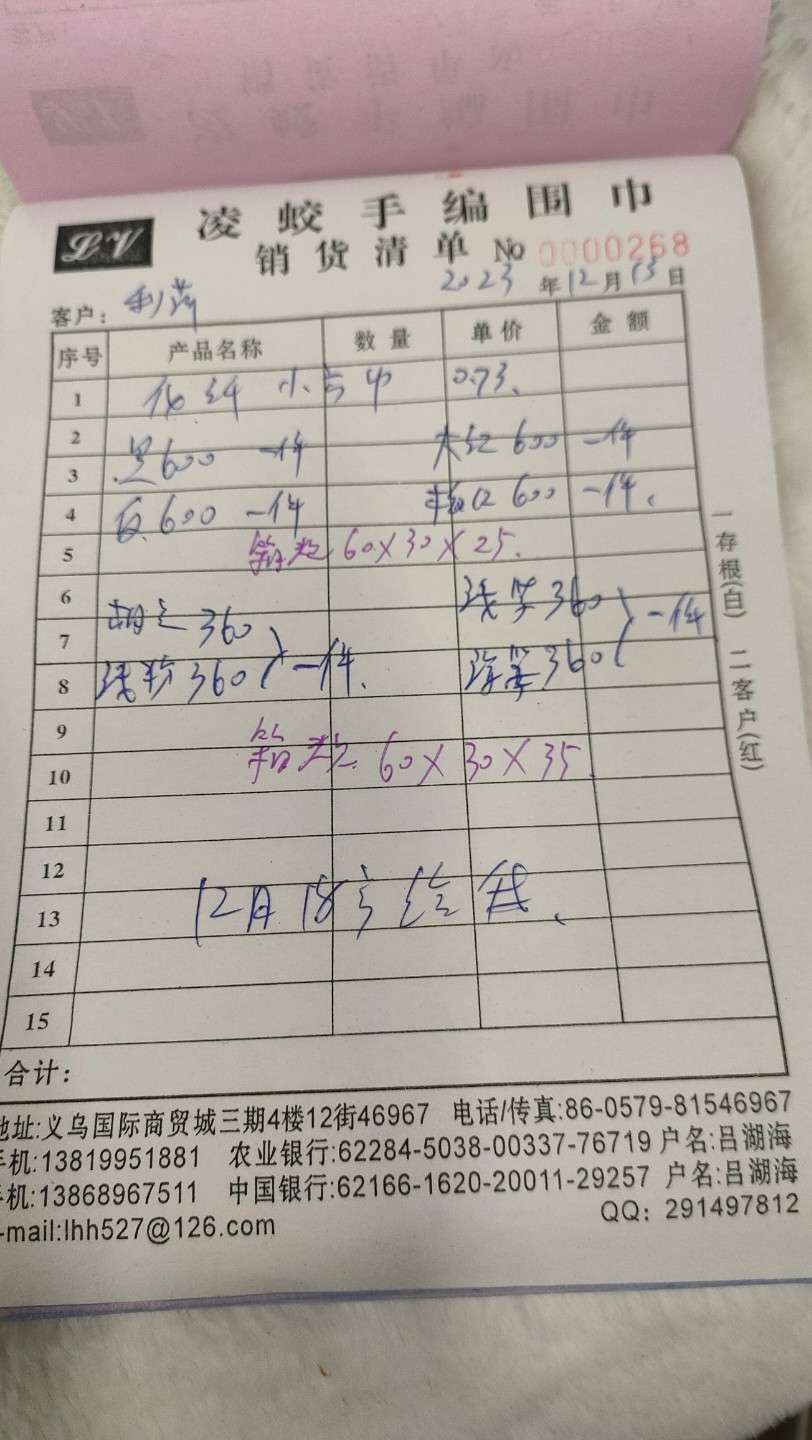 LV
凌蛟手编围巾
销货清单 No 0000268
2023年12月13日
客户:
序号 产品名称 数量 单价 金额
1 小方巾 0.73
2
3 黑600 一件 大红600 一件
4 600 一件 600 一件
5 箱规 60X30X25
6 浅紫360
7 360 一件 一件
8 浅粉360 360
9
10 箱规 60X30X35
11
12
13 12月18号给钱
14
15
合计:
一存根(白) 二客户(红)
地址:义乌国际商贸城三期4楼12街46967 电话/传真:86-0579-81546967
手机:13819951881 农业银行:62284-5038-00337-76719 户名:吕湖海
手机:13868967511 中国银行:62166-1620-20011-29257 户名:吕湖海
-mail:lhh527@126.com QQ: 291497812